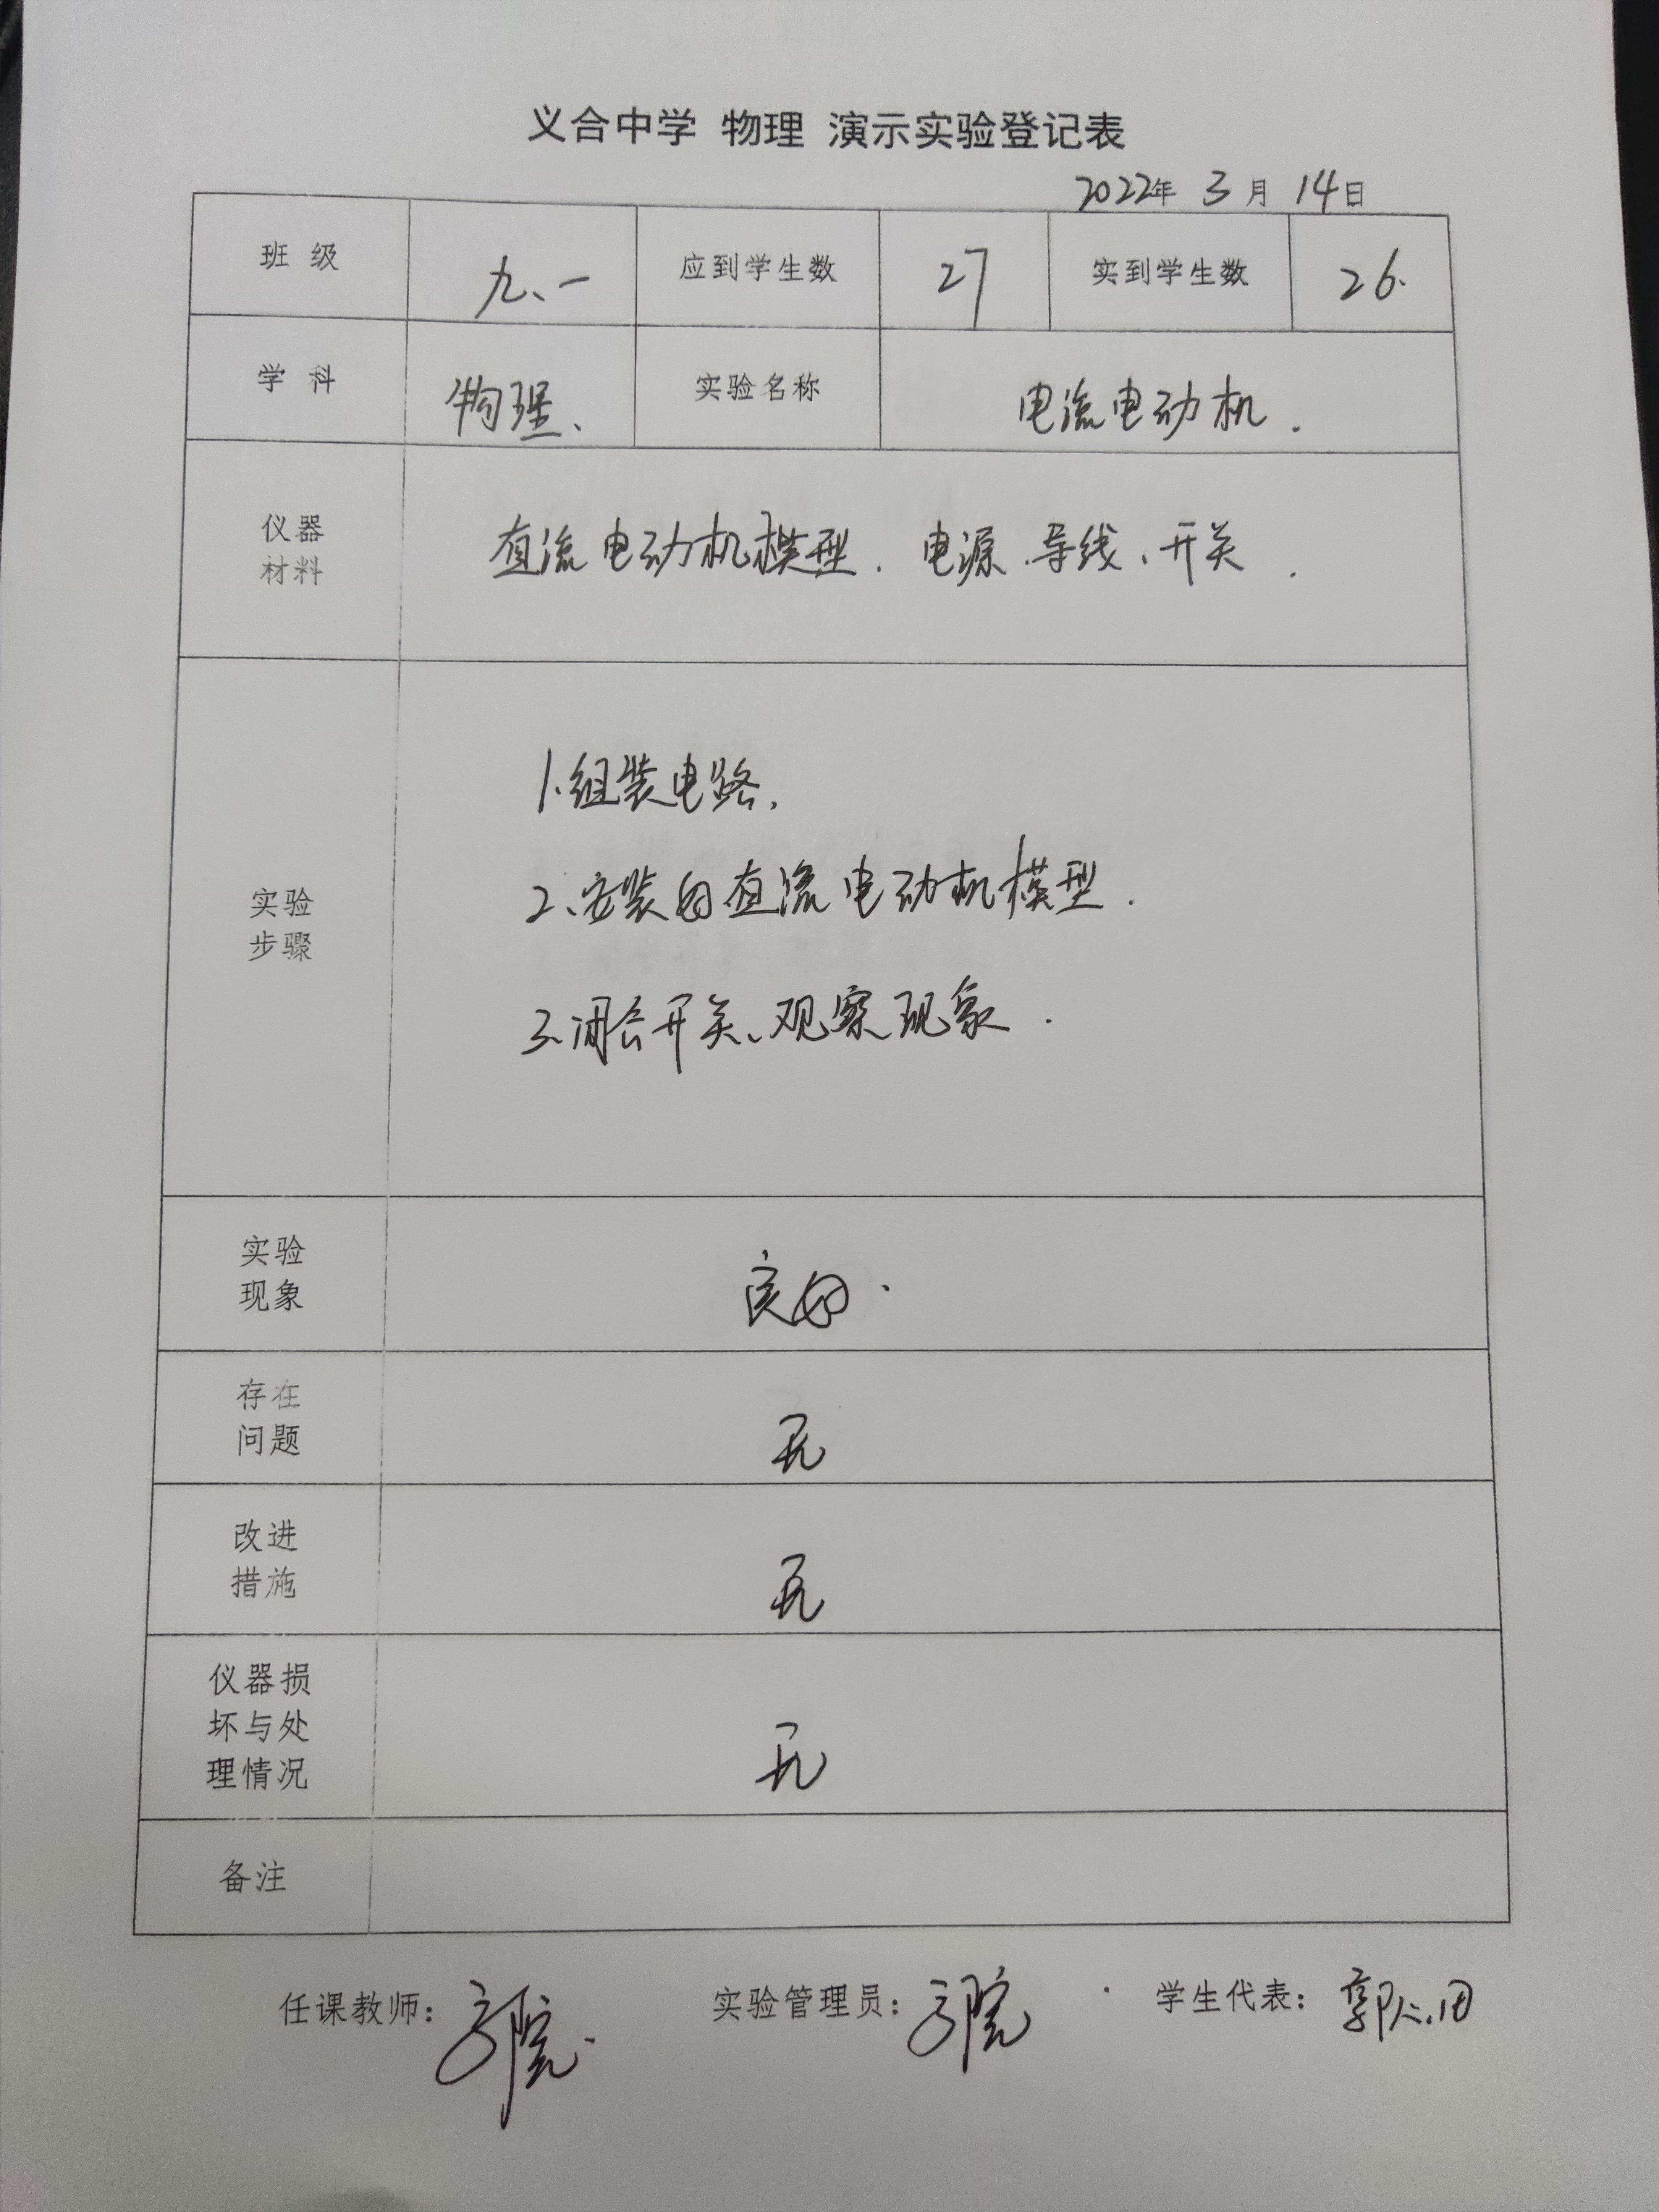 义合中学 物理 演示实验登记表
2022年 3月 14日
班 级 九、一 应到学生数 27 实到学生数 26.
学 科 物理、 实验名称 电流电动机.
仪器
材料
直流电动机模型. 电源.导线、开关.
实验
步骤
1.组装电路.
2、安装好直流电动机模型.
3.闭合开关、观察现象.
实验
现象
良好.
存在
问题
无
改进
措施
无
仪器损
坏与处
理情况
无
备注
任课教师: 实验管理员: 学生代表: 郭